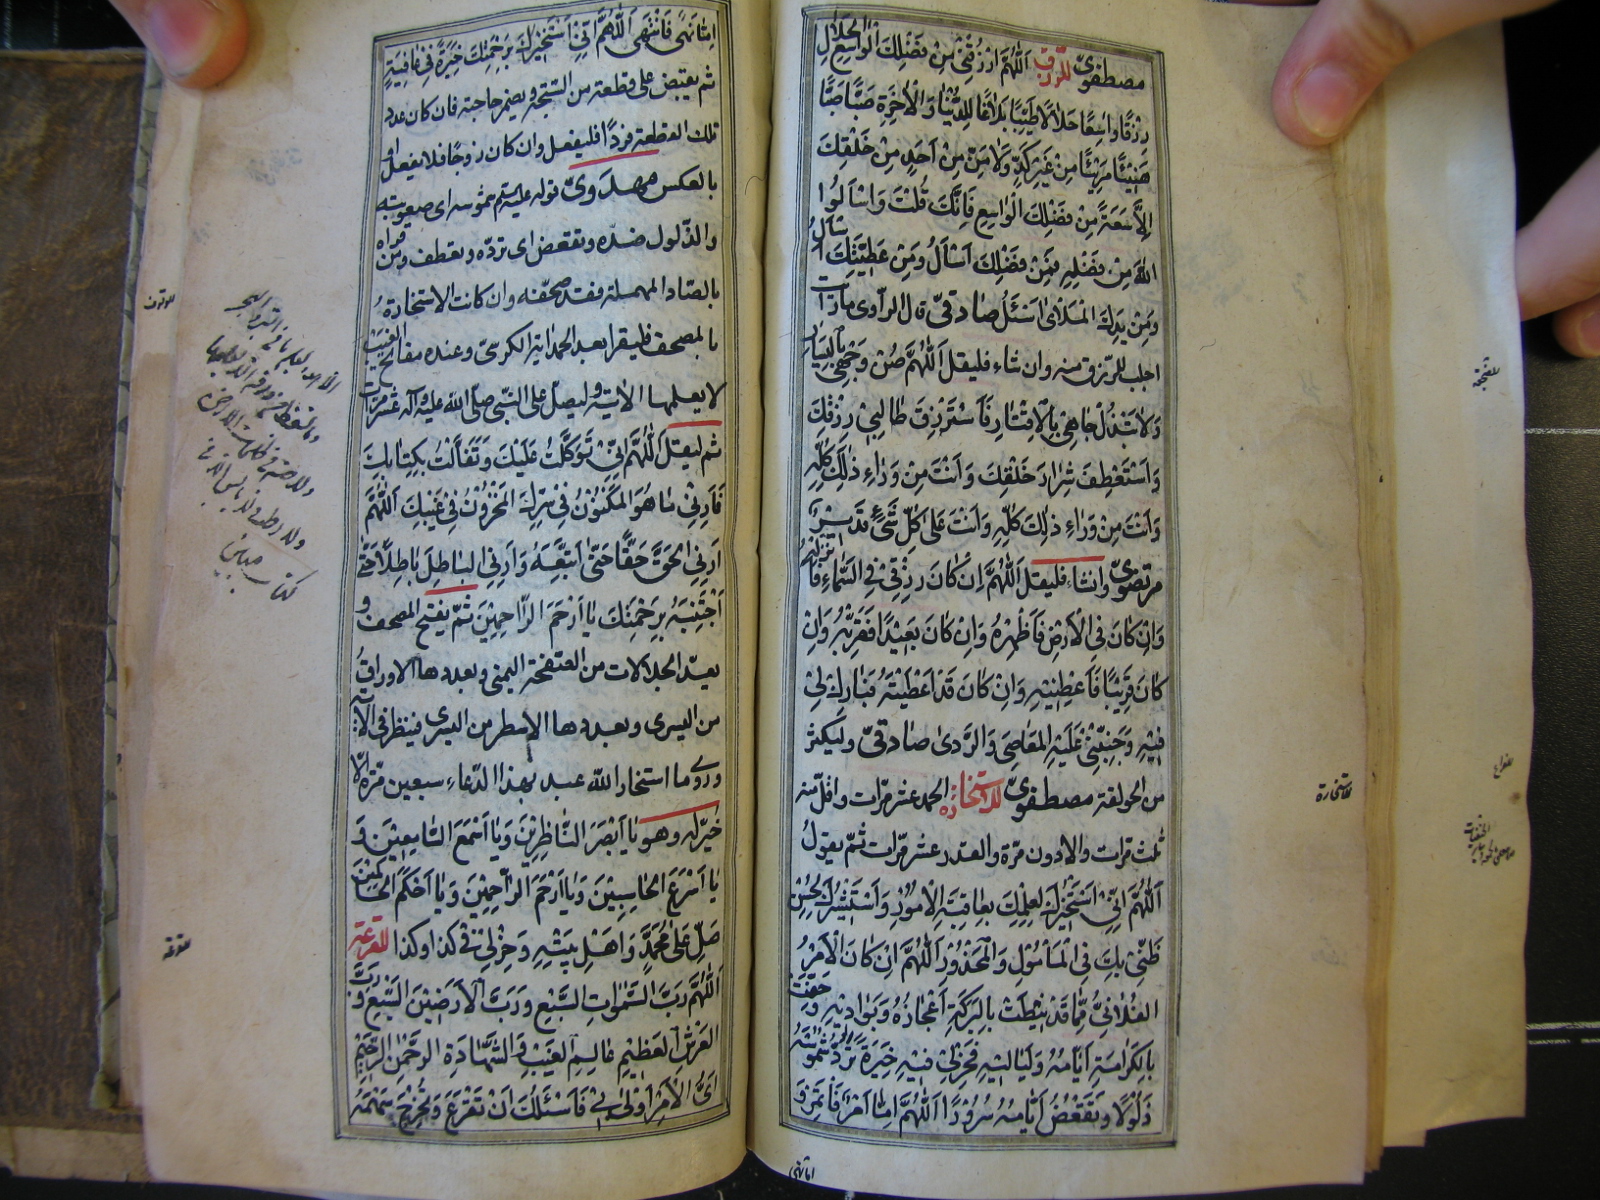 مصطفوىّ للرزق اَللّٰهُمَّ ارْزُقْنِى مِنْ فَضْلِكَ الْوَاسِعِ الْحَلَالِ
رِزْقًا وَاسِعًا حَلَالًا طَيِّبًا بَلَاغًا لِلدُّنْيَا وَالْاٰخِرَةِ صَبًّا صَبًّا
هَنِيْئًا مَرِيْئًا مِنْ غَيْرِ كَدٍّ وَلَا مَنٍّ مِنْ اَحَدٍ مِنْ خَلْقِكَ
اِلَّا سَعَةً مِنْ فَضْلِكَ الْوَاسِعِ فَاِنَّكَ قُلْتَ وَاسْاَلُوا
اللهَ مِنْ فَضْلِهِ فَمِنْ فَضْلِكَ اَسْاَلُ وَمِنْ عَطِيَّتِكَ اَسْاَلُ
وَمِنْ يَدِكَ الْمَلْاٰى اَسْئَلُ صادقىّ قال الراوى ما رايت
اجلب للرزق منه وان شاء فليقل اَللّٰهُمَّ صُنْ وَجْهِى بِالْيَسَارِ
وَلَا تَبْذُلْ جَاهِى بِالْاِقْتَارِ فَاَسْتَرْزِقَ طَالِبِى رِزْقِكَ
وَاَسْتَعْطِفَ شِرَارَ خَلْقِكَ وَاَنْتَ مِنْ وَرَاءِ ذٰلِكَ كُلِّهِ
وَاَنْتَ مِنْ وَرَاءِ ذٰلِكَ كُلِّهِ وَاَنْتَ عَلٰى كُلِّ شَىْءٍ قَدِيْرٌ
مرتضوىّ وان شاء فليقل اَللّٰهُمَّ اِنْ كَانَ رِزْقِى فِى السَّمَاءِ فَاَنْزِلْهُ
وَاِنْ كَانَ فِى الْاَرْضِ فَاَظْهِرْهُ وَاِنْ كَانَ بَعِيْدًا فَقَرِّبْهُ وَاِنْ
كَانَ قَرِيْبًا فَاَعْطِنِيْهِ وَاِنْ كَانَ قَدْ اَعْطَيْتَهُ فَبَارِكْ لِىْ
فِيْهِ وَجَنِّبْنِىْ عَلَيْهِ الْمَعَاصِىَ وَالرَّدٰى صادقىّ وليكثر
من الحولقة مصطفوىّ للاستخارة الحمد عشر مرّات واقلّه
ثلث مرات والادون مرّة والقدر عشر مرّات ثمّ يقول
اَللّٰهُمَّ اِنِّىْ اَسْتَخِيْرُكَ لِعِلْمِكَ بِعَاقِبَةِ الْاُمُوْرِ وَاَسْتَشِيْرُكَ لِحُسْنِ
ظَنِّىْ بِكَ فِى الْمَاْمُوْلِ وَالْمَحْذُوْرِ اَللّٰهُمَّ اِنْ كَانَ الْاَمْرُ
الْفُلَانِىُّ مِمَّا قَدْ نِيْطَتْ بِالْبَرَكَةِ اَعْجَازُهُ وَبَوَادِيْهِ وَحُفَّتْ
بِالْكَرَامَةِ اَيَّامُهُ وَلَيَالِيْهِ فَخِرْ لِىْ فِيْهِ خِيَرَةً تَرُدُّ شَمُوْسَهُ
ذَلُوْلًا وَتَقْعَضُ اَيَّامَهُ سُرُوْرًا اَللّٰهُمَّ اِمَّا اَمْرٌ فَاٰتَمِرُ وَ
اما نهى
للاستخارة
اِمَّا نَهْىٌ فَاَنْتَهِى اَللّٰهُمَّ اِنِّىْ اَسْتَخِيْرُكَ بِرَحْمَتِكَ خِيَرَةً فِىْ عَافِيَةٍ
ثم يقبض على قطعة من السّبحة ويضمر حاجته فان كان عدد
تلك القطعة فردًا فليفعل وان كان زوجًا فلا يفعل او
بالعكس مهدوىّ قوله عليه السلم شموسه اى صعوبته
والذّلول ضدّه وتقعض اى تردّه وتعطف ومن قراه
بالصّاد المهملة فقد صحّفه وان كانت الاستخارة
بالمصحف فليقرا بعد الحمد اية الكرسىّ وعنده مفاتح الغيب
لا يعلمها الاية وليصلّ على النّبى صلّى الله عليه وآله عشر مرات
ثم ليقل اَللّٰهُمَّ اِنِّىْ تَوَكَّلْتُ عَلَيْكَ وَتَفَاَّلْتُ بِكِتَابِكَ
فَاَرِنِىْ مَا هُوَ الْمَكْنُوْنُ فِىْ سِرِّكَ الْمَخْزُوْنُ فِىْ غَيْبِكَ اَللّٰهُمَّ
اَرِنِى الْحَقَّ حَقًّا حَتّٰى اَتَّبِعَهُ وَاَرِنِى الْبَاطِلَ بَاطِلًا حَتّٰى
اَجْتَنِبَهُ بِرَحْمَتِكَ يَا اَرْحَمَ الرَّاحِمِيْنَ ثمّ يفتح المصحف و
يعدّ الجلالات من الصفحة اليمنى وبعددها الاوراق
من اليسرى وبعددها الاسطر من اليسرى فينظر فى الاية
وروى ما استخار الله عبد بهذا الدّعاء سبعين مرّة الّا
خير له وهو يَا اَبْصَرَ النَّاظِرِيْنَ وَيَا اَسْمَعَ السَّامِعِيْنَ وَ
يَا اَسْرَعَ الْحَاسِبِيْنَ وَيَا اَرْحَمَ الرَّاحِمِيْنَ وَيَا اَحْكَمَ الْحَاكِمِيْنَ
صَلِّ عَلٰى مُحَمَّدٍ وَاَهْلِ بَيْتِهِ وَخِرْ لِىْ فى كذا وكذا للقرعة
اَللّٰهُمَّ رَبَّ السَّمٰوَاتِ السَّبْعِ وَرَبَّ الْاَرَضِيْنَ السَّبْعِ وَرَبَّ
الْعَرْشِ الْعَظِيْمِ عَالِمَ الْغَيْبِ وَالشَّهَادَةِ الرَّحْمٰنَ الرَّحِيْمَ
اَىُّ الْاَمْرِ اَوْلٰى بِىْ فَاَسْئَلُكَ اَنْ تُقْرِعَ وَتُخْرِجَ سَهْمَهُ
للقرعة
كتاب مبين